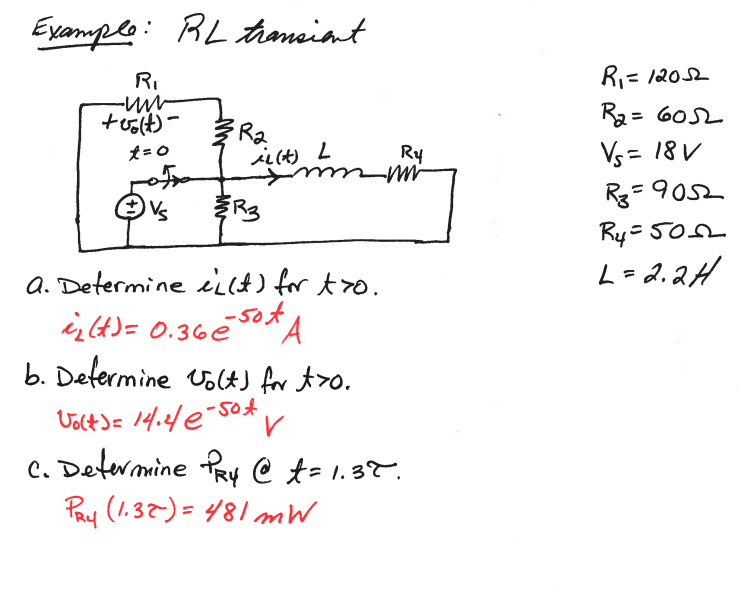 Example: RL transient
R1
+ vo(t) -
t=0
R2
iL(t) L
R4
Vs
R3
R1 = 120Ω
R2 = 60Ω
Vs = 18V
R3 = 90Ω
R4 = 50Ω
L = 2.2H
a. Determine iL(t) for t>0.
iL(t) = 0.36e^-50t A
b. Determine vo(t) for t>0.
vo(t) = 14.4e^-50t V
c. Determine PR4 @ t = 1.3τ.
PR4 (1.3τ) = 481 mW